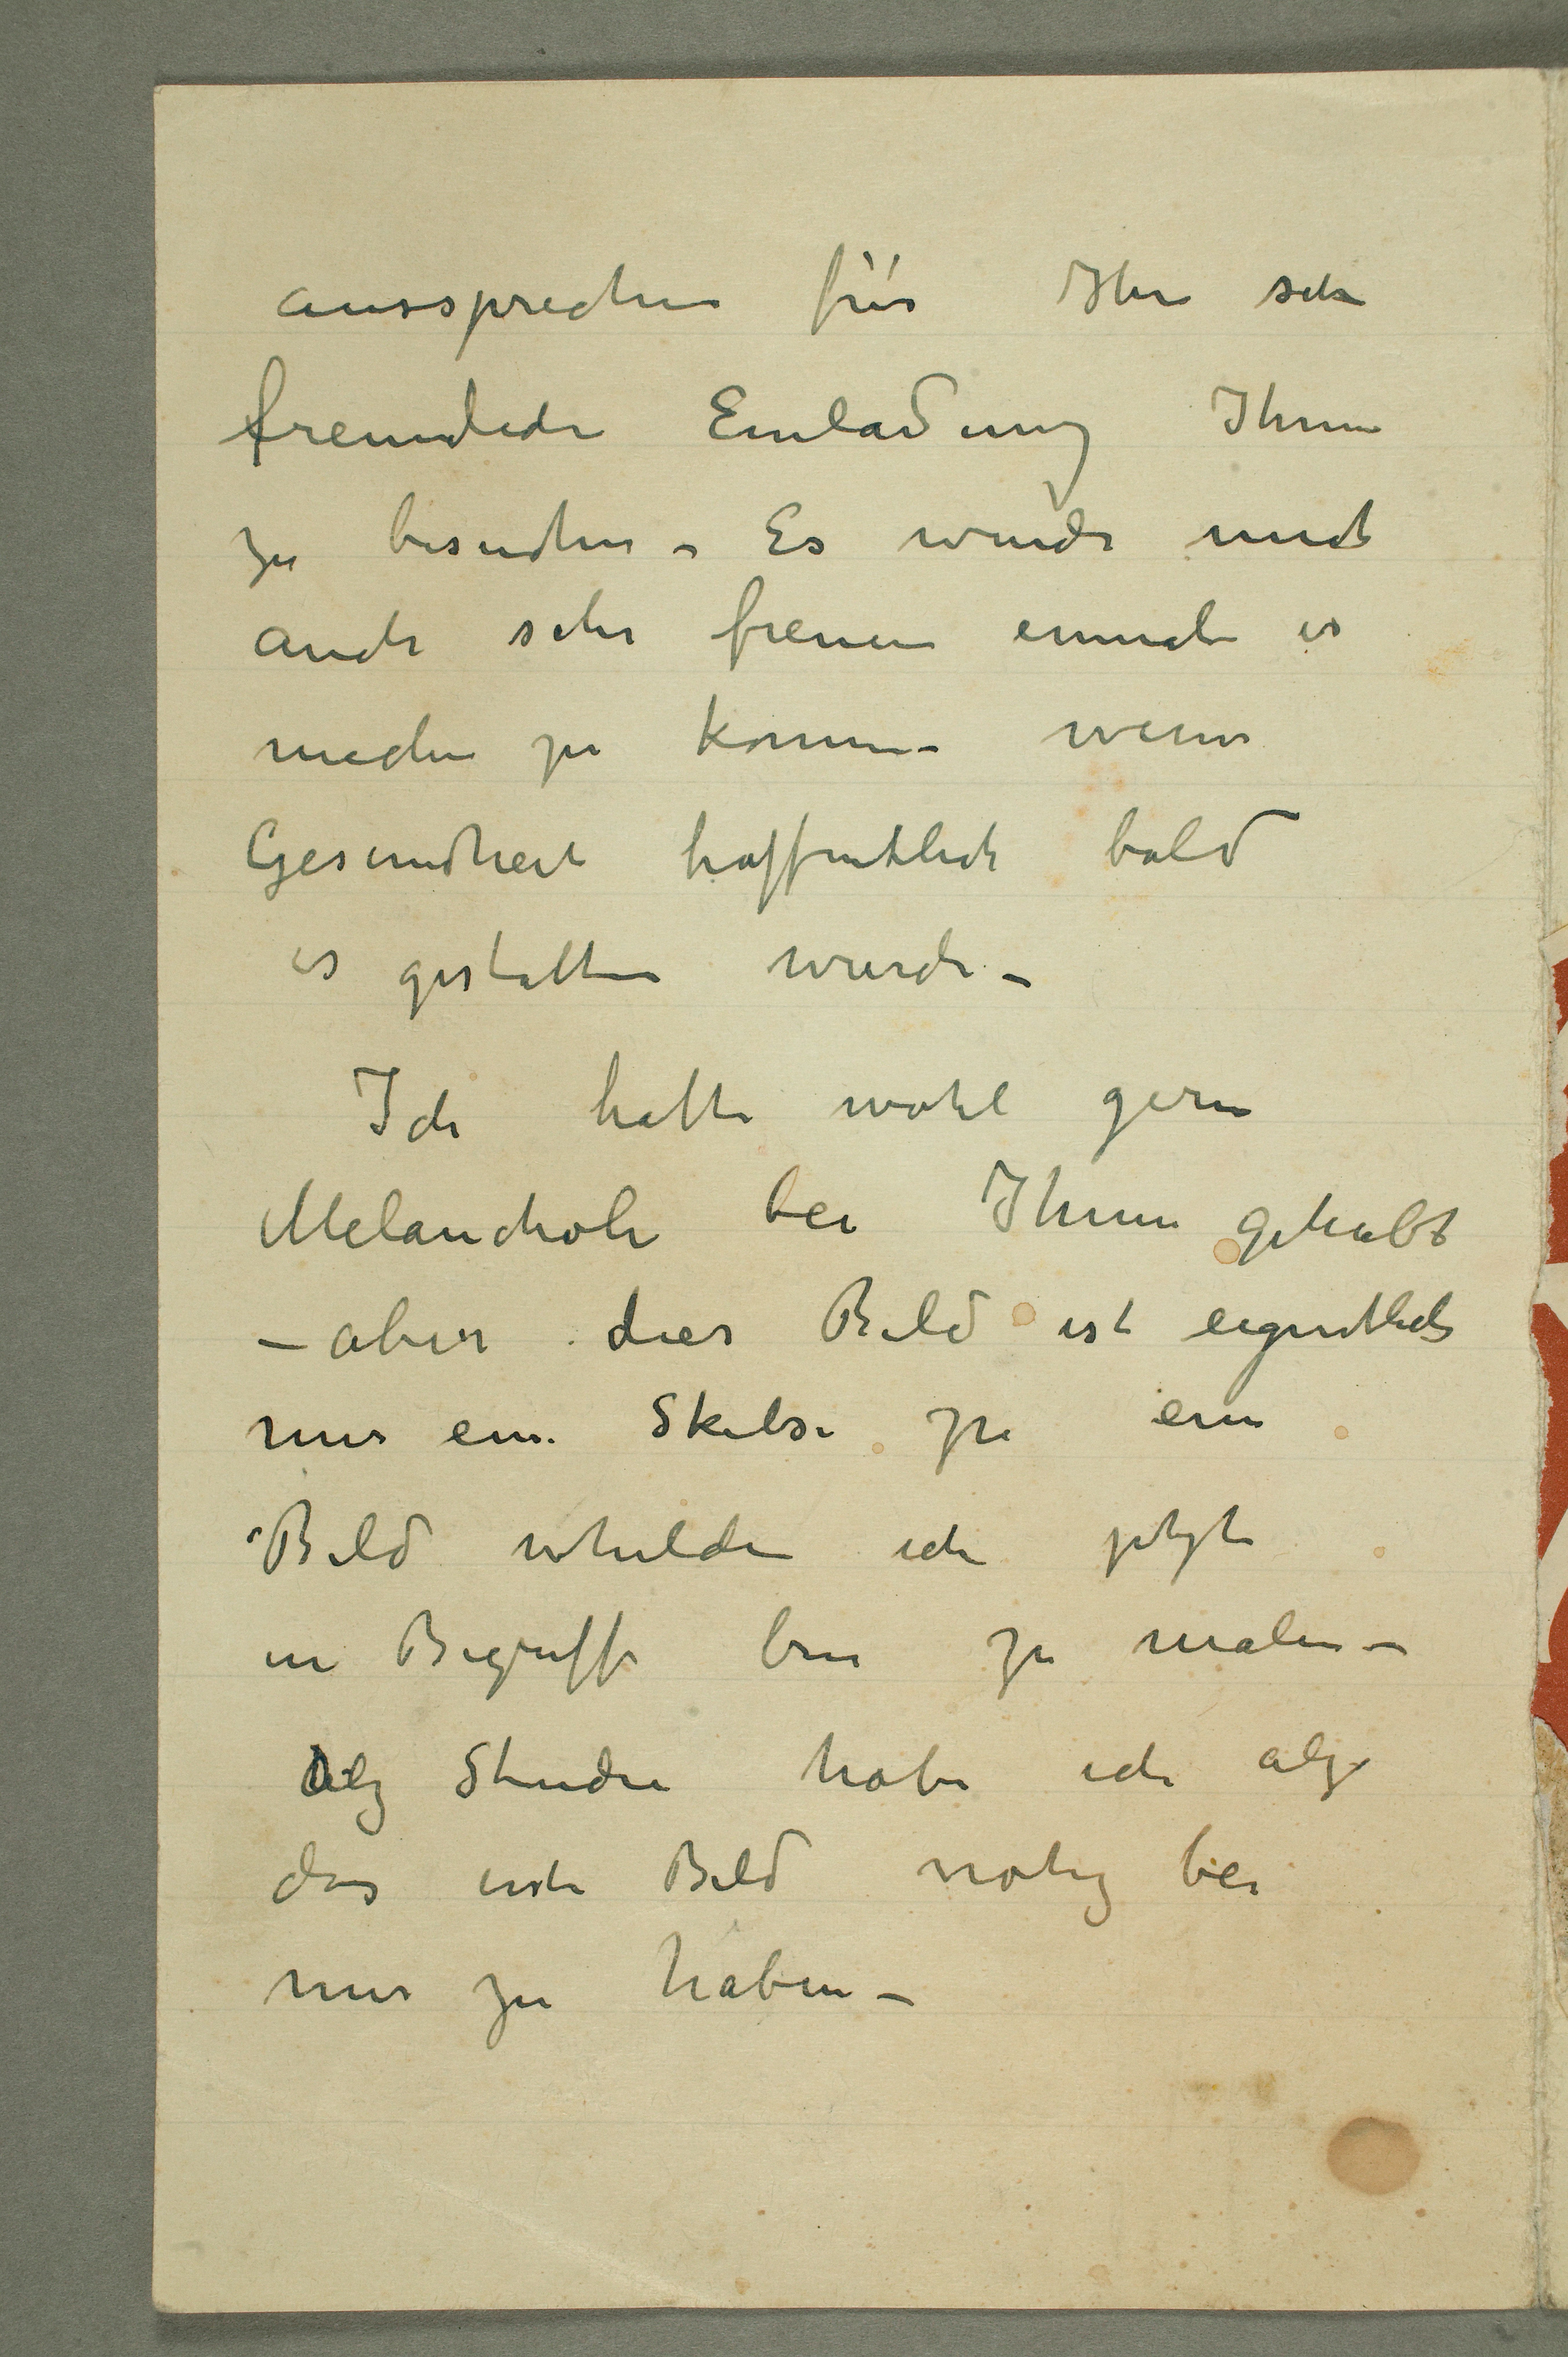 aussprechen für Ihre sehr
freundliche Einladung Ihnen
zu besuchen – Es wurde mich
auch sehr freuen einmal es
machen zu können – wenn
Gesundheit hoffentlich bald
es gestatten wurde –
Ich hatte wohl gern
Melancholi bei Ihnen gehabt
– aber dies Bild ist eigentlich
nur eine Skitse zu ein
Bild welchen ich jetzt
in Begriff bin zu malen –
Alz Studie habe ich alzo
das erste Bild notig bei
mir zu haben –